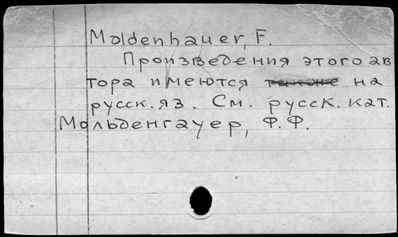 Moldenhauer, F.
Произведения этого ав
тора имеются также на
русск. яз. См. русск. кат.
Мольденгауер, Ф.Ф.